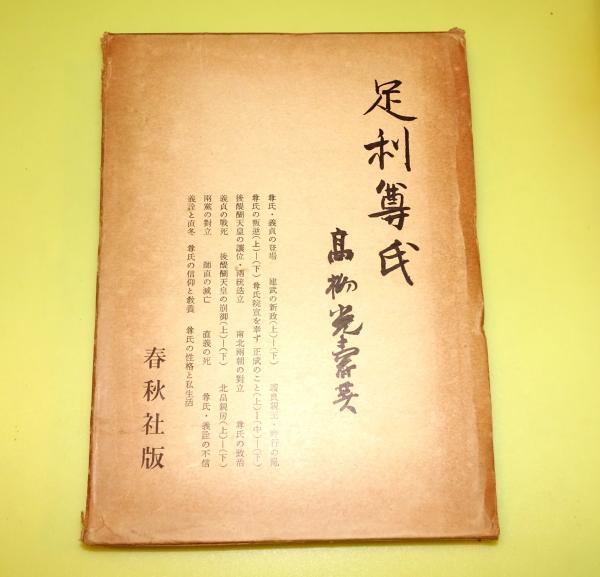 足利尊氏
高柳光壽著
尊氏・義貞の登場 建武の新政(上)―(下) 護良親王・時行の亂
尊氏の叛逆(上)―(下) 尊氏院宣を奉ず 正成のこと(上)―(中)―(下)
後醍醐天皇の讓位・兩統迭立 南北兩朝の對立 尊氏の政治
義貞の戰死 後醍醐天皇の崩御(上)―(下) 北畠親房(上)―(下)
兩黨の對立 師直の滅亡 直義の死 尊氏・義詮の不信
義詮と直冬 尊氏の信仰と敎養 尊氏の性格と私生活
春秋社版